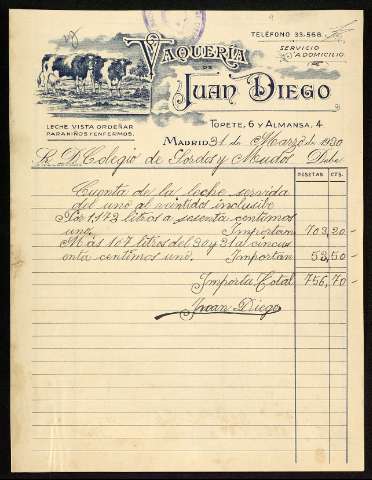 TELÉFONO 33-568.
SERVICIO
A DOMICILIO
VAQUERÍA
DE
JUAN DIEGO
LECHE VISTA ORDEÑAR
PARA NIÑOS Y ENFERMOS.
TOPETE, 6 Y ALMANSA, 4
MADRID 31 de Marzo de 1930
Sr. D. Colegio de Sordos y Mudos Debe
PESETAS CTS.
Cuenta de la leche servida
del uno al veintidos inclusibe
Por 1,172 litros a sesenta centimos
uno. Importan 703,20-
Más 107 litros del 30 y 31 a cincu
enta centimos uno. Importan 53,50-
Importa Total 756,70-
Juan Diego